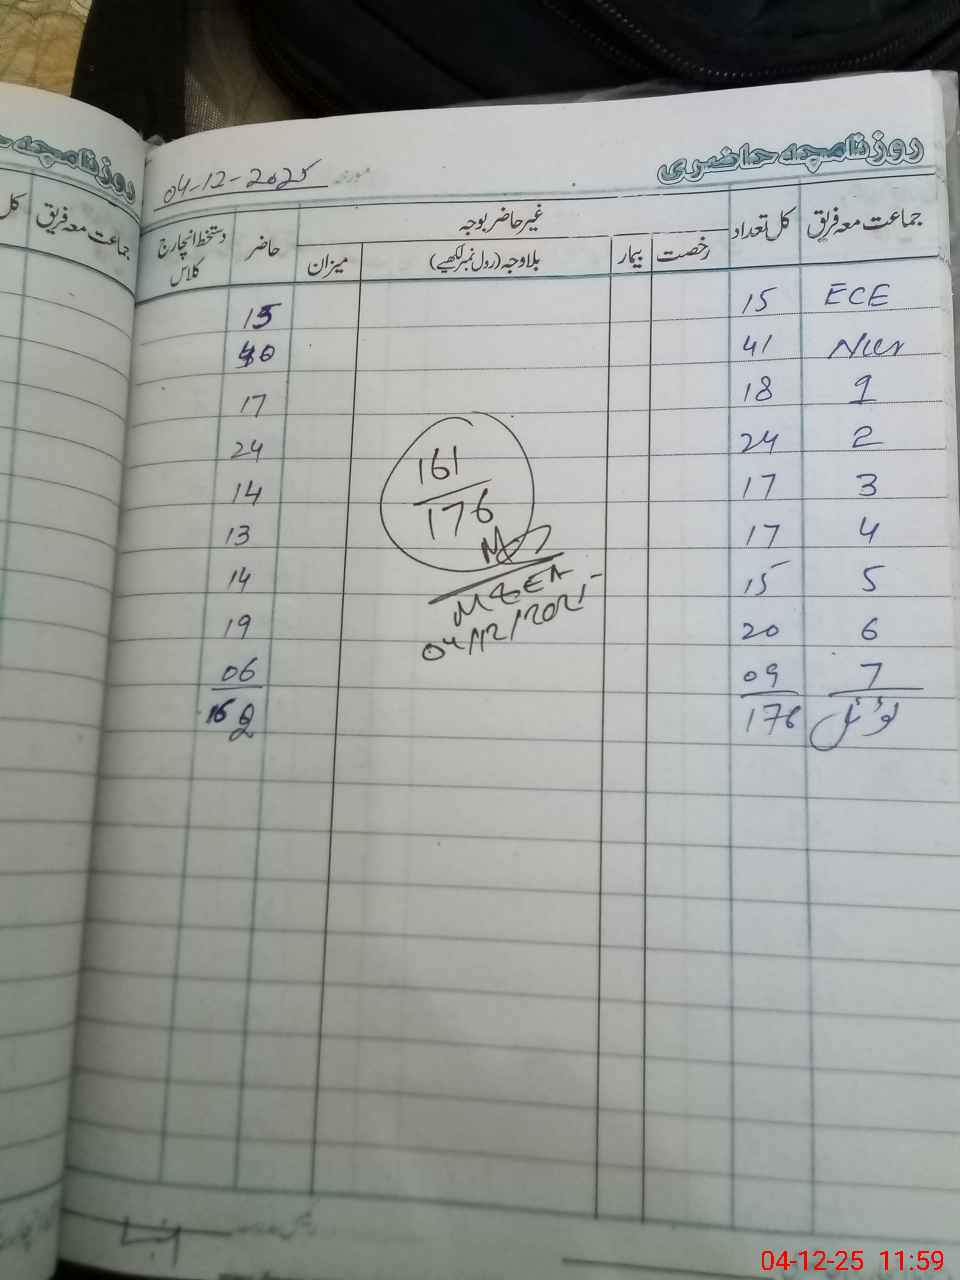 روزنامچہ حاضری
مورخہ 04-12-2025
جماعت معہ فریق کل تعداد غیر حاضر بوجہ حاضر دستخط انچارج کلاس
رخصت بیمار بلاوجہ (رول نمبر لکھیے) میزان
ECE 15 15
Nur 41 40
1 18 17
2 24 24
3 17 14
4 17 13
5 15 14
6 20 19
7 09 06
ٹوٹل 176 162
161
176
MEEA
04/12/2025
روزنامچہ
جماعت معہ فریق
کل
04-12-25 11:59